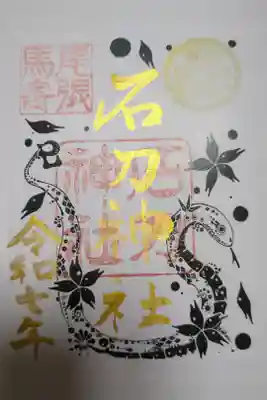 尾張
馬寄
石刀神社
石刀
神社
巳
令和七年